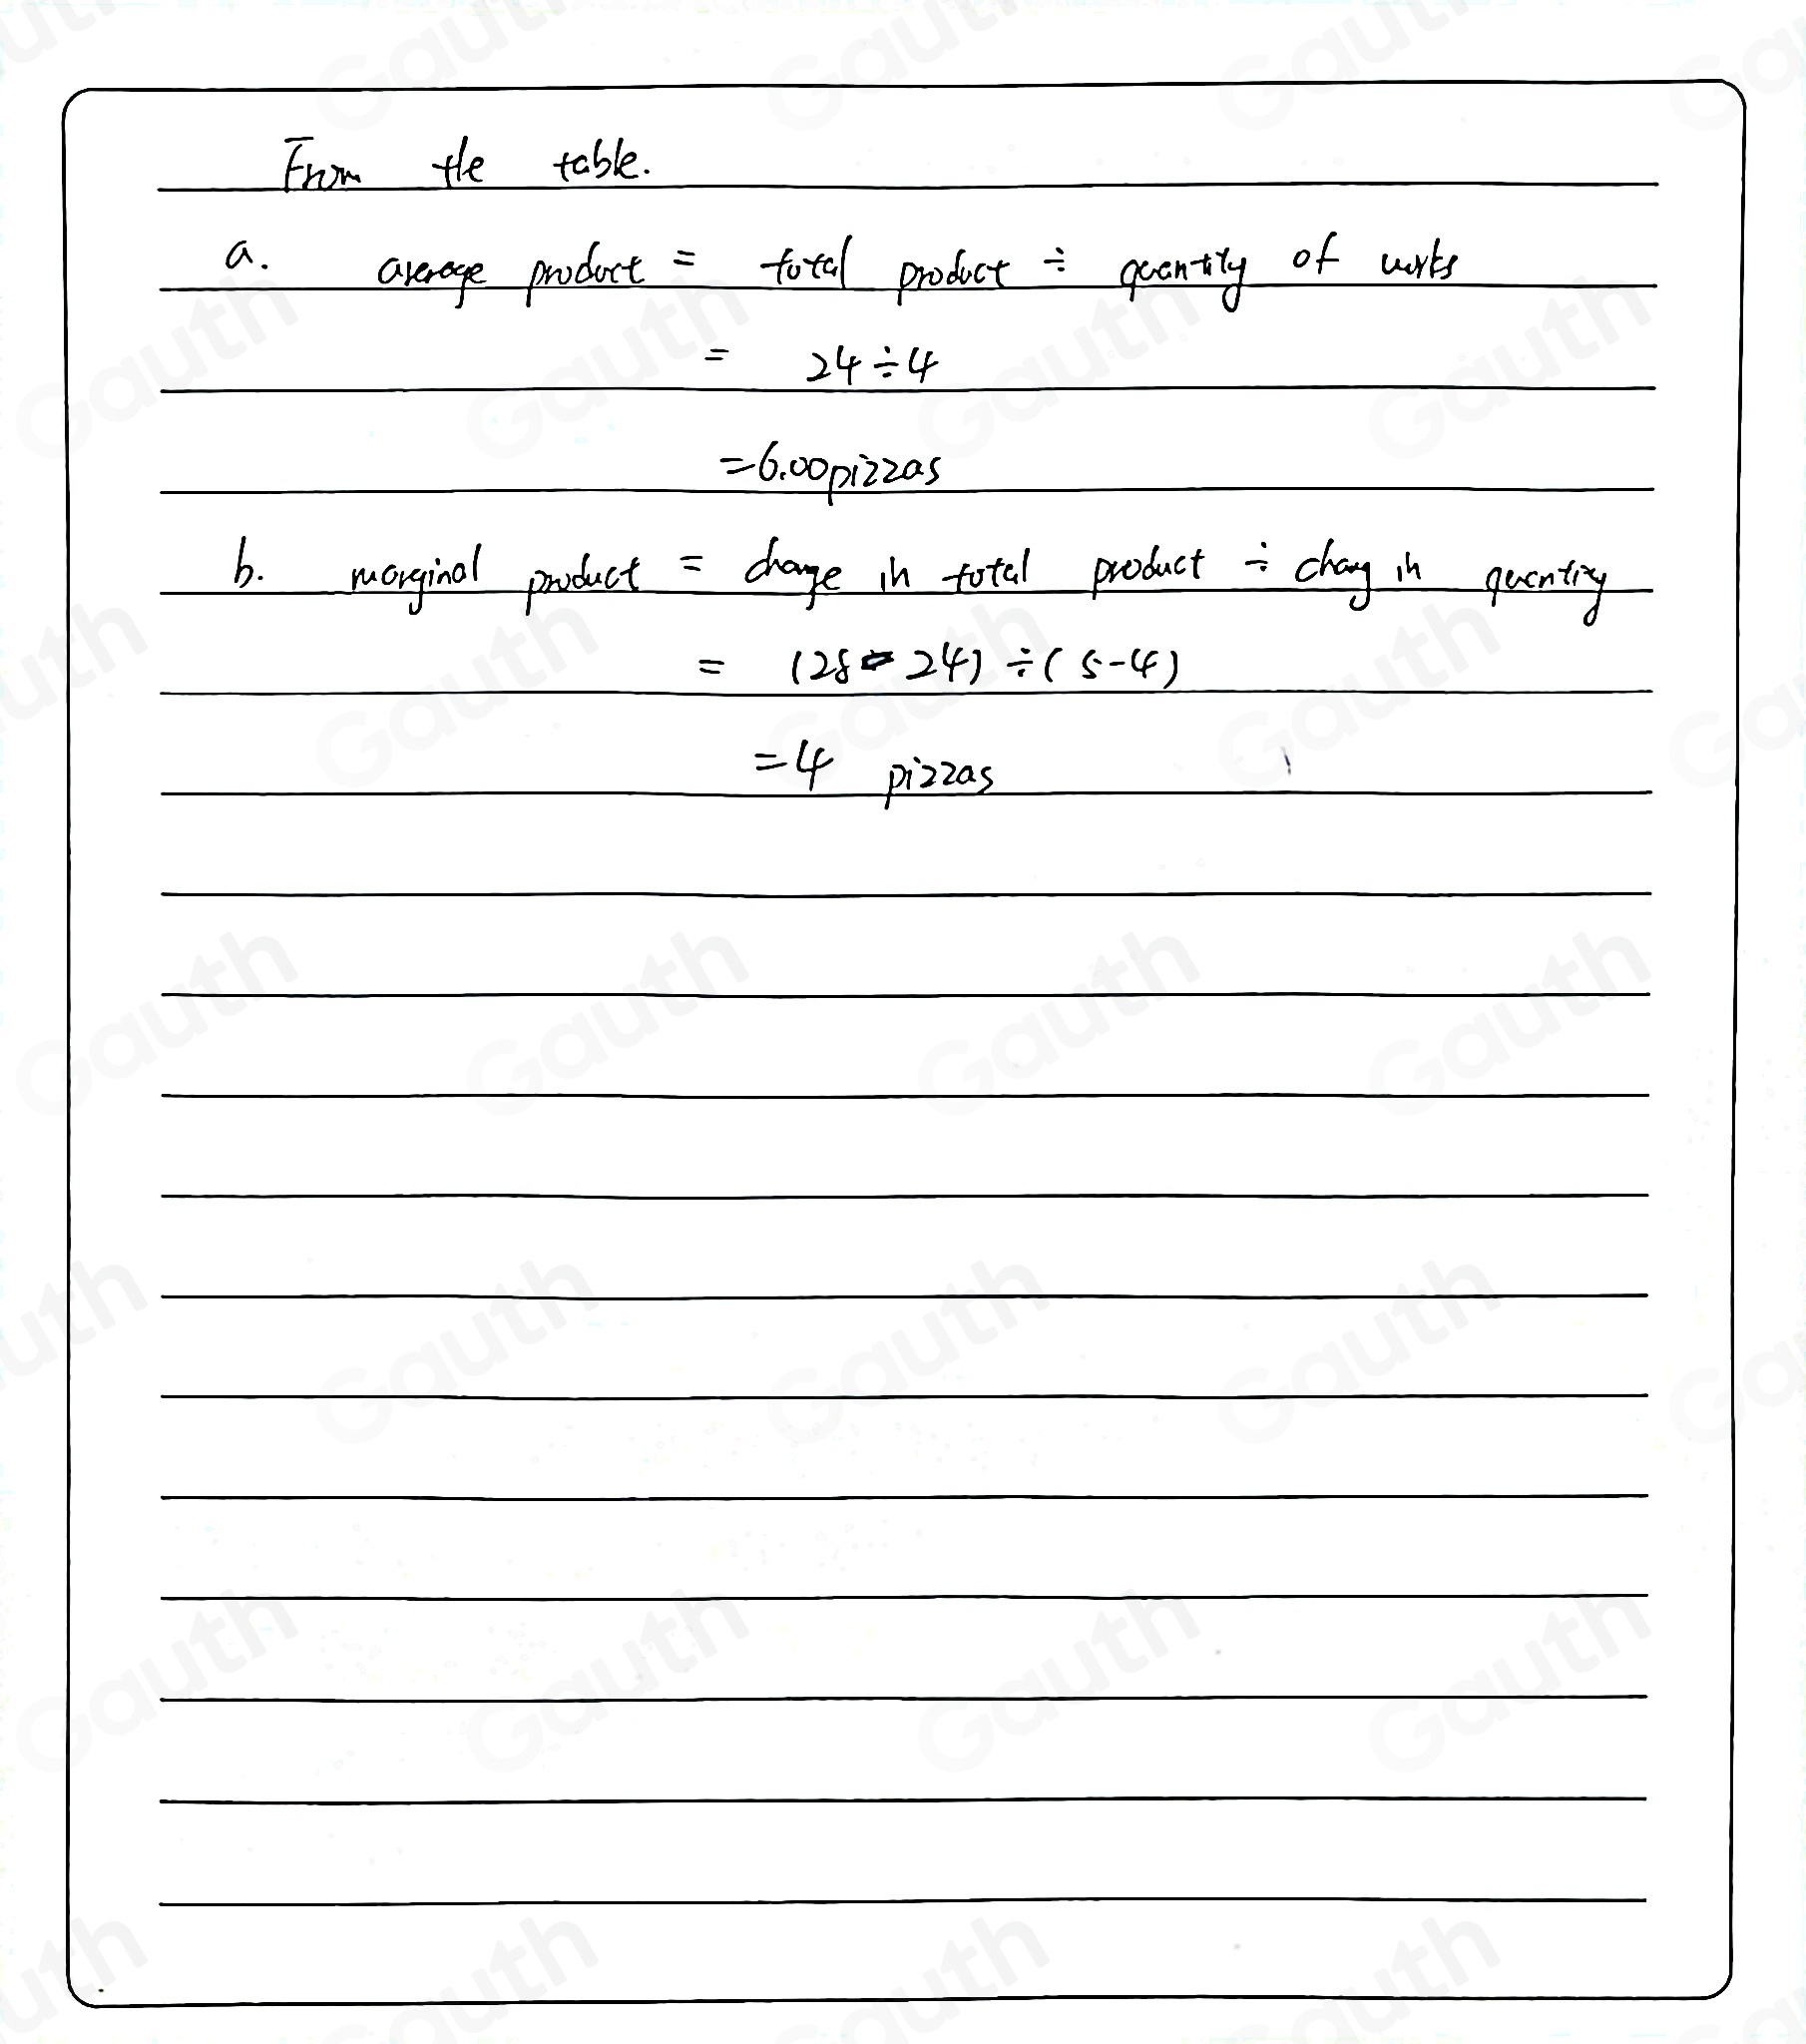 From the table.
a. average product = total product ÷ quantity of works
= 24÷4
=6.00pizzas
b. marginal product = change in total product ÷ chang in quantity
= (28-24) ÷(5-4)
=4 pizzas
Gauth